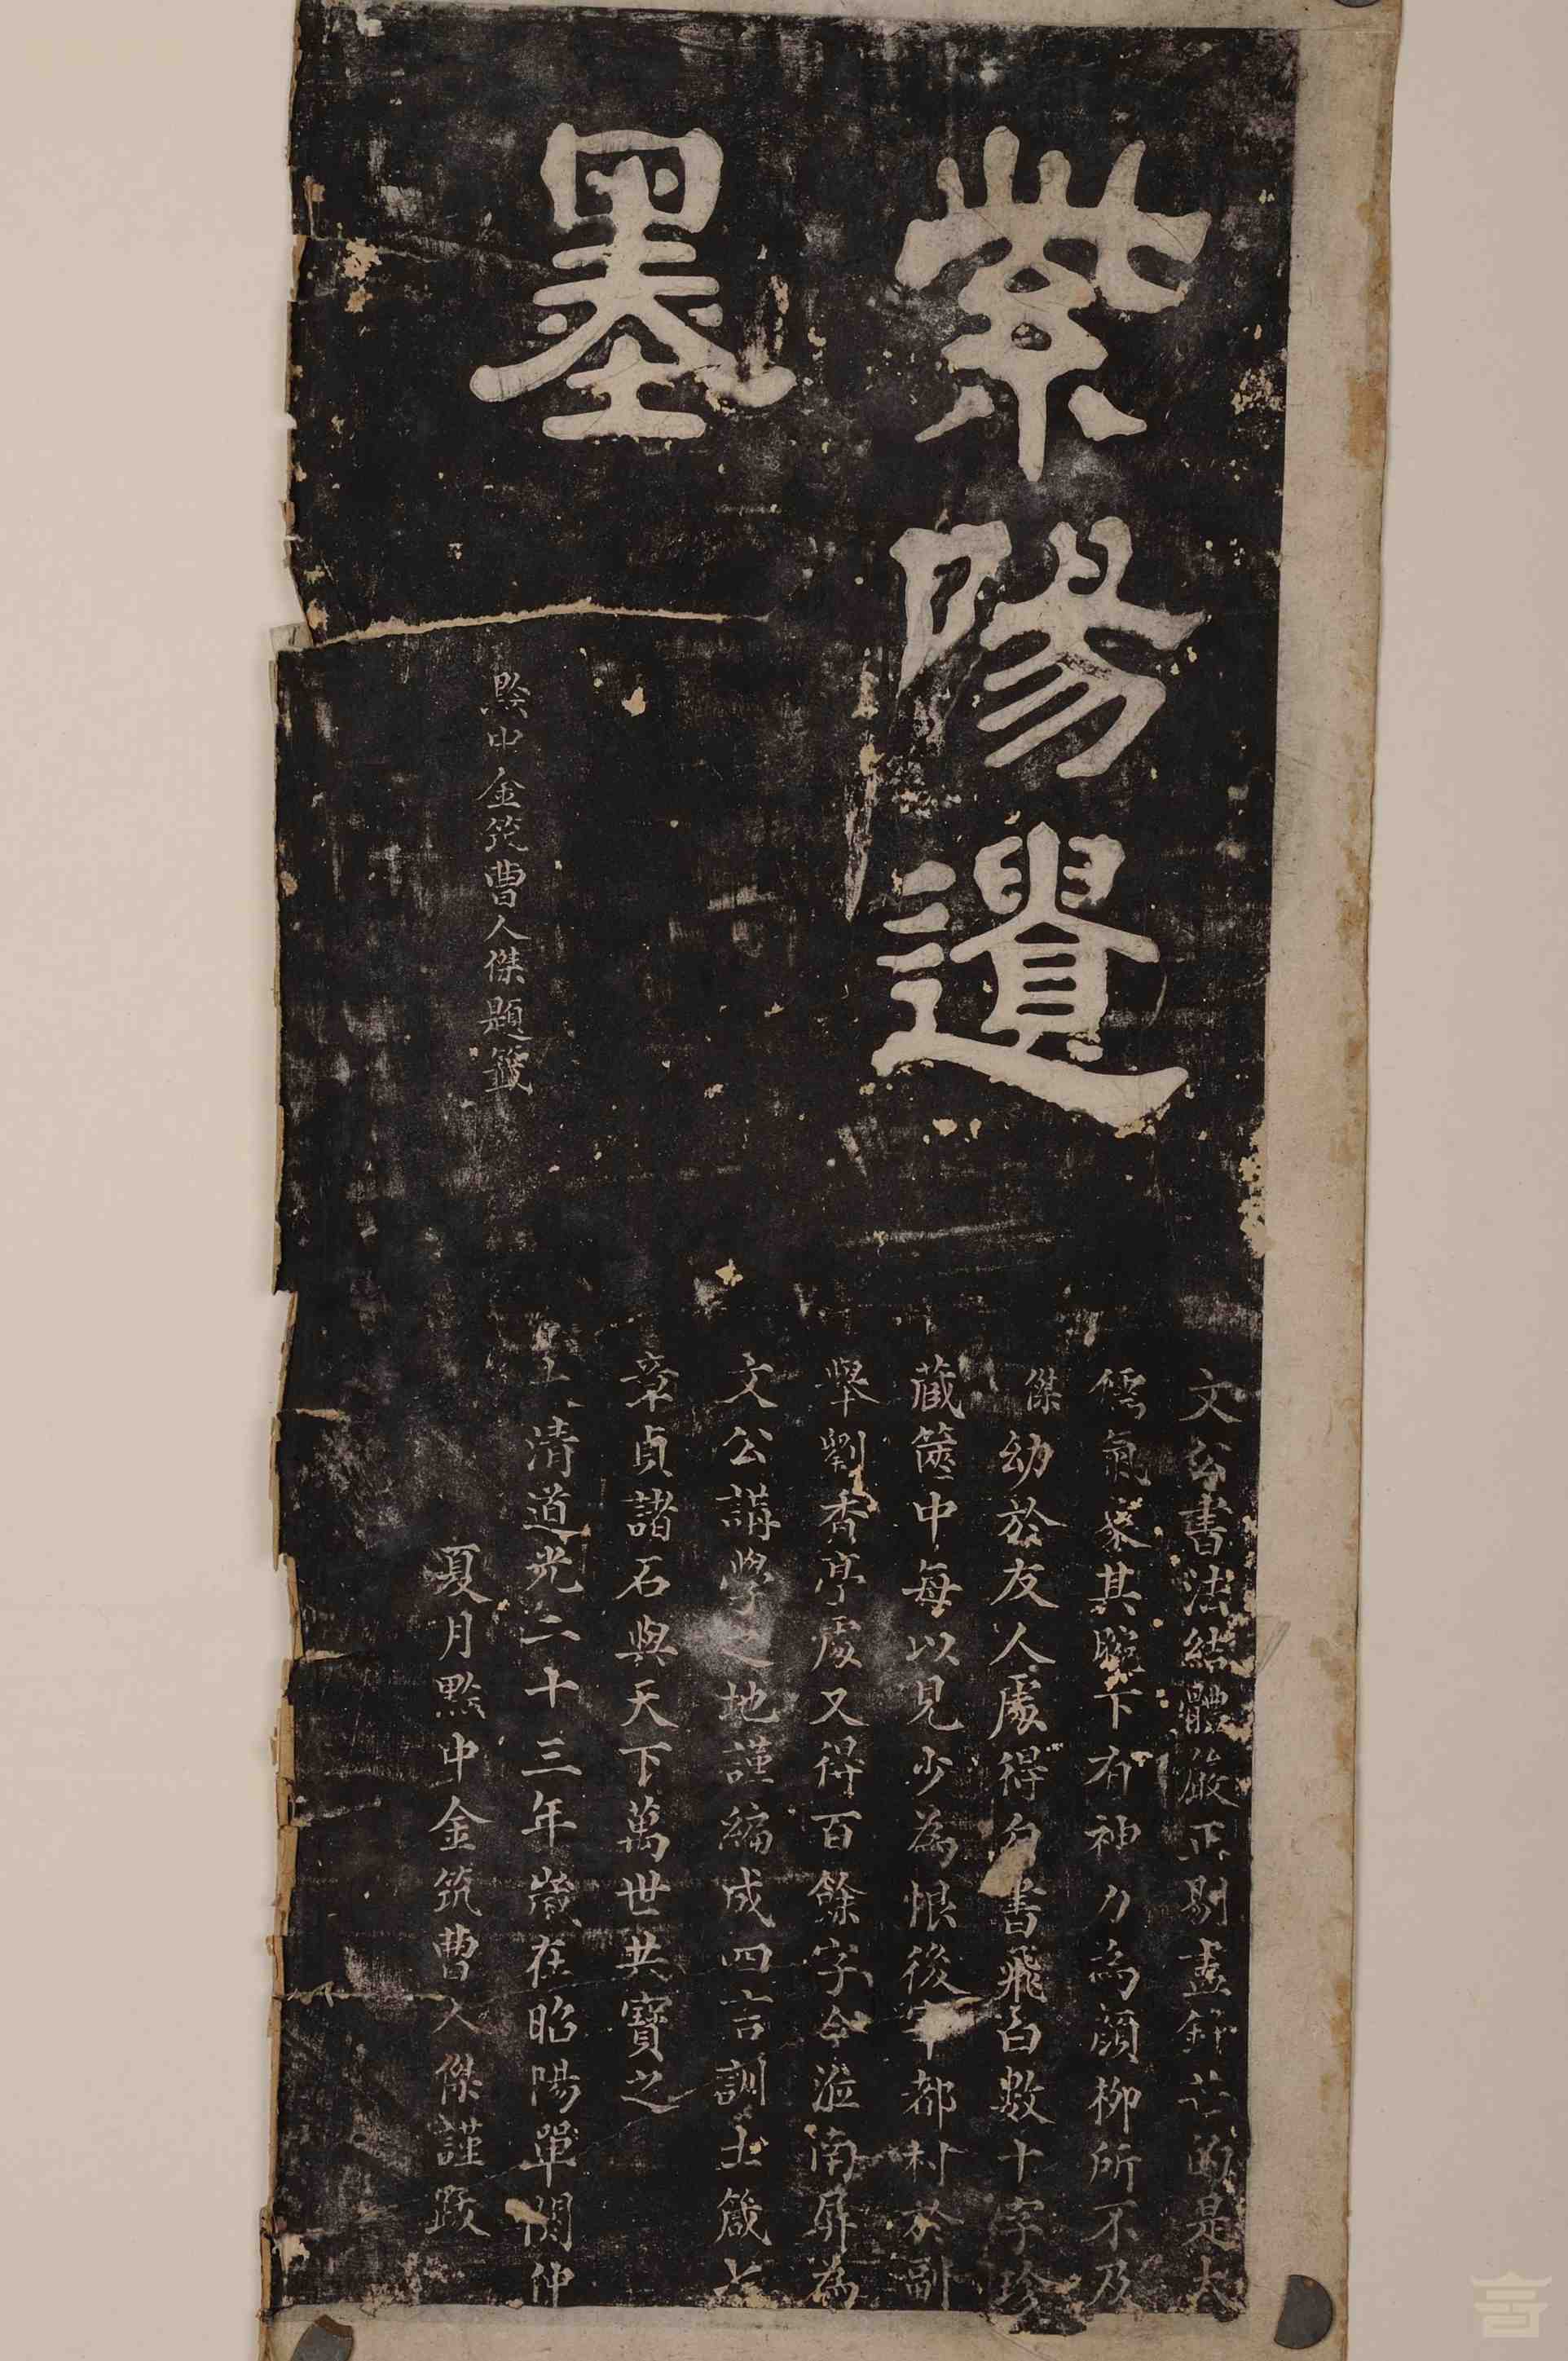 紫陽遺
墨
黔中金筑曹人傑題籤
文公書法結體嚴正剔盡鋒芒的是大
儒氣象其腕下有神力為顏柳所不及
傑幼於友人處得勻書飛白數十字珍
蔵篋中每以見少為恨後宰都村於副
舉劉香亭處又得百餘字今蒞南屏為
文公講學之地謹編成四言訓士箴七
章貞諸石與天下萬世共寶之
清道光二十三年歲在昭陽單閼仲
夏月黔中金筑曹人傑謹跋